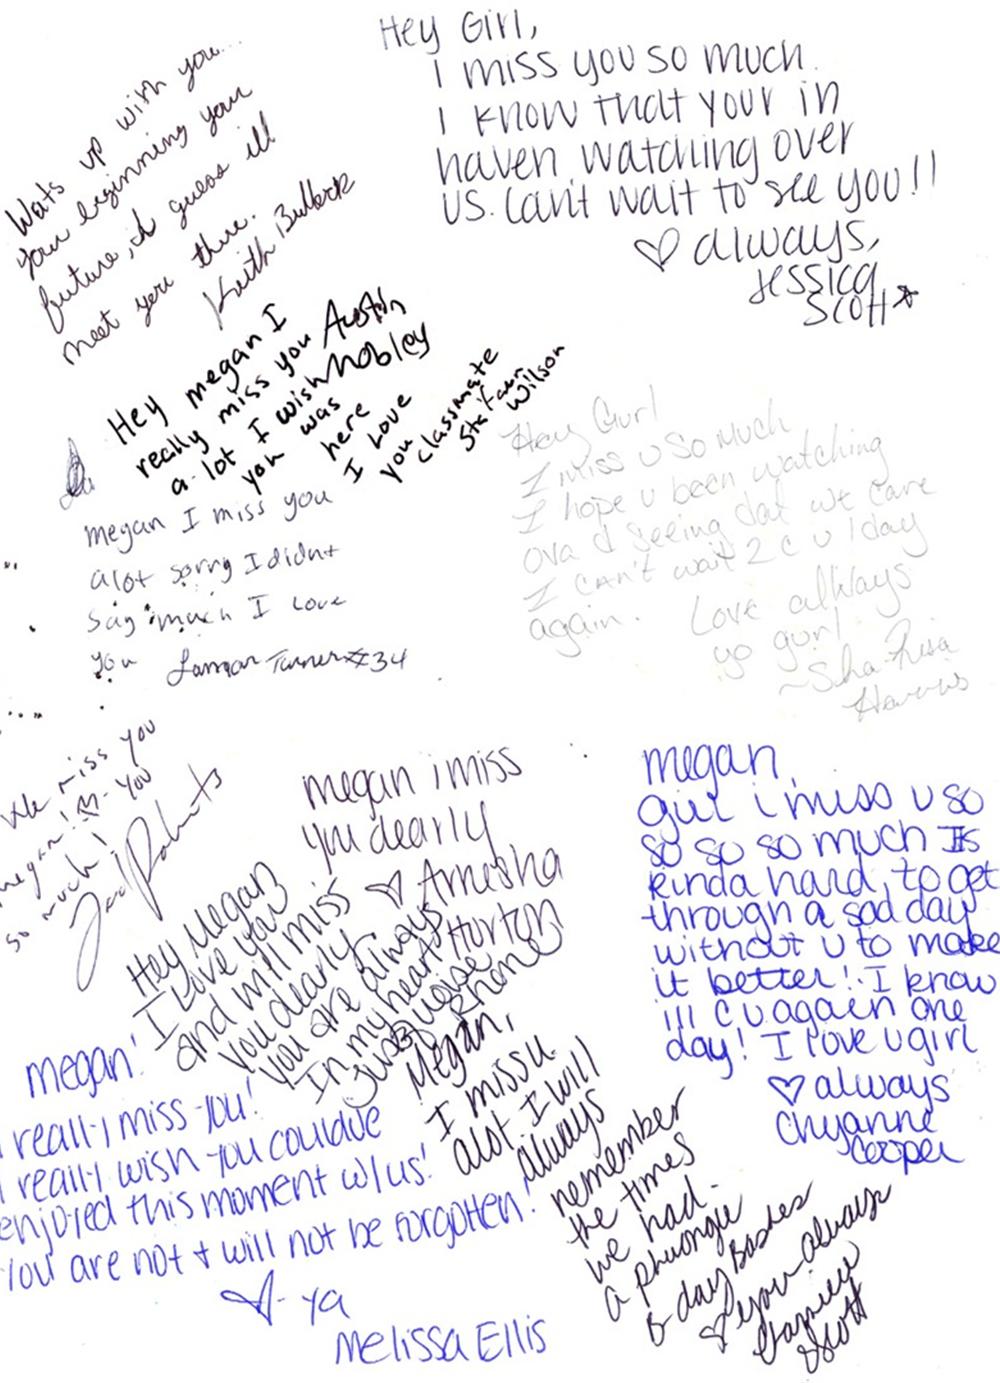 Hey Girl,
I miss you so much.
I know that your in
haven watching over
us. Can't wait to see you!!
♡ always,
Jessica
Scott
Wats up with you...
your beginning your
future, id guess ill
meet you there.
Keith Bullock
Hey megan I
really miss you
a lot I wish
you was
here
I Love
you
Austin
Mobley
classmate
Wilson
Hey Gurl
I miss u so much
I hope u been watching
ova d seeing dat we care
I can't wait 2 c u 1 day
again. Love allways
yo gurl
~Sha-Risa
Harris
megan I miss you
alot sorry I didnt
say much I Love
you Lamar Turner #34
We miss you
megan! ♡ you
so much!
megan i miss
you dearly
♡ Amesha
Horton
megan,
gurl i miss u so
so so so much Is
kinda hard, to get
through a sad day
without u to make
it better! I know
ill c u again one
day! I love u girl
♡ always
Chyanne
Cooper
Hey Megan
I Love you
and will miss
you dearly
you are always
In my heart
megan!
I really miss you!
I really wish you couldve
enjoyed this moment w/us!
You are not + will not be forgotten!
♡- ya
Melissa Ellis
Megan,
I miss u
alot I will
always
remember
the times
we had.
a phuongie
b-day Bashes
♡ you always
Scott